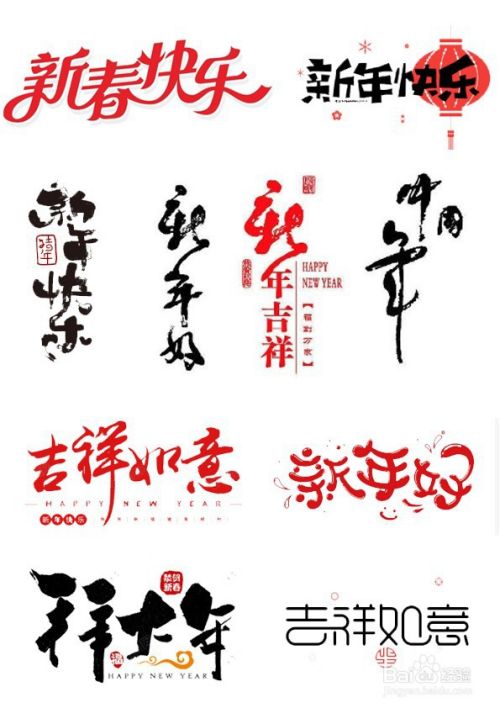 新春快乐
新年快乐
新年快乐
新年好
新年吉祥
HAPPY
NEW YEAR
【福到万家】
中国年
吉祥如意
HAPPY NEW YEAR
新年快乐
新年好
拜大年
恭贺新春
HAPPY NEW YEAR
吉祥如意
Baidu经验
jingyan.baidu.com